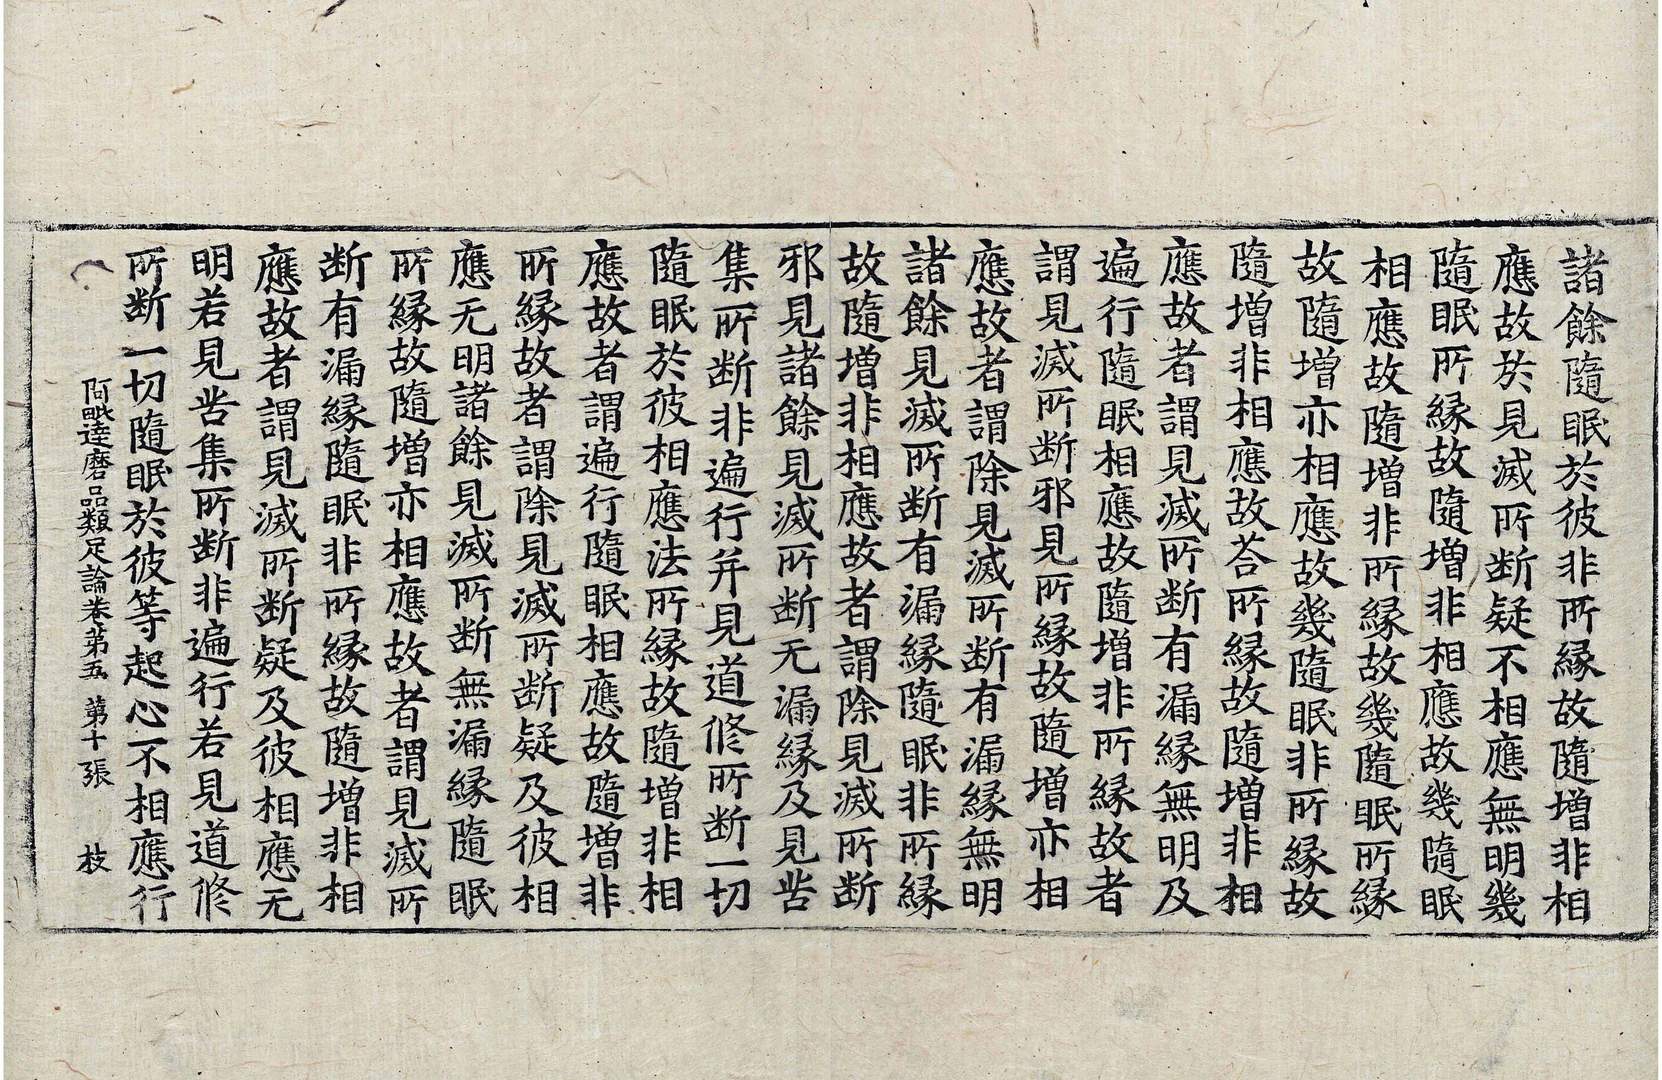 諸餘隨眠於彼非所縁故隨增非相
應故於見滅所断疑不相應無明幾
隨眠所縁故隨增非相應故幾隨眠
相應故隨增非所縁故幾隨眠所縁
故隨增亦相應故幾隨眠非所縁故
隨增非相應故荅所縁故隨增非相
應故者謂見滅所断有漏縁無明及
遍行隨眠相應故隨增非所縁故者
謂見滅所断邪見所縁故隨增亦相
應故者謂除見滅所断有漏縁無明
諸餘見滅所断有漏縁隨眠非所縁
故隨增非相應故者謂除見滅所断
邪見諸餘見滅所断无漏縁及見苦
集所断非遍行并見道修所断一切
隨眠於彼相應法所縁故隨增非相
應故者謂遍行隨眠相應故隨增非
所縁故者謂除見滅所断疑及彼相
應无明諸餘見滅所断無漏縁隨眠
所縁故隨增亦相應故者謂見滅所
断有漏縁隨眠非所縁故隨增非相
應故者謂見滅所断疑及彼相應无
明若見苦集所断非遍行若見道修
所断一切隨眠於彼等起心不相應行
阿毗逹磨品類足論卷第五 第十張 枝